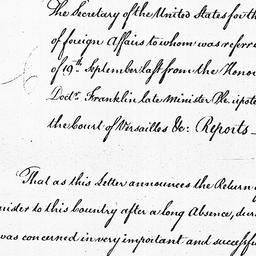 The Secretary of the United States for th
of foreign Affairs to whom was referr
of 19th September last from the Honor
Doctr. Franklin late Minister Ple. ipote
the Court of Versailles &c: Reports—
That as this Letter announces the Return o
nister to this Country after a long Absence, dur
was concerned in very important and successfu